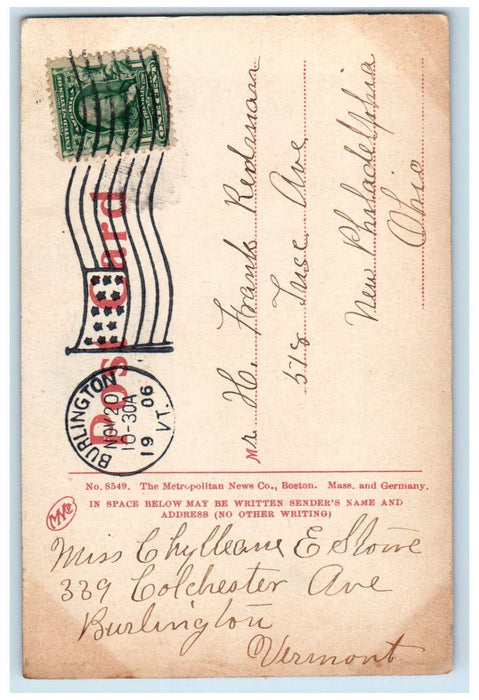 Post Card
BURLINGTON
NOV 20
10-30A
19 06
VT.
Mr H. Frank Redman
518 Tusc Ave
New Philadelphia
Ohio
No. 8549. The Metropolitan News Co., Boston. Mass. and Germany.
MNCo
IN SPACE BELOW MAY BE WRITTEN SENDER'S NAME AND
ADDRESS (NO OTHER WRITING)
Miss E Stowe
339 Colchester Ave
Burlington
Vermont